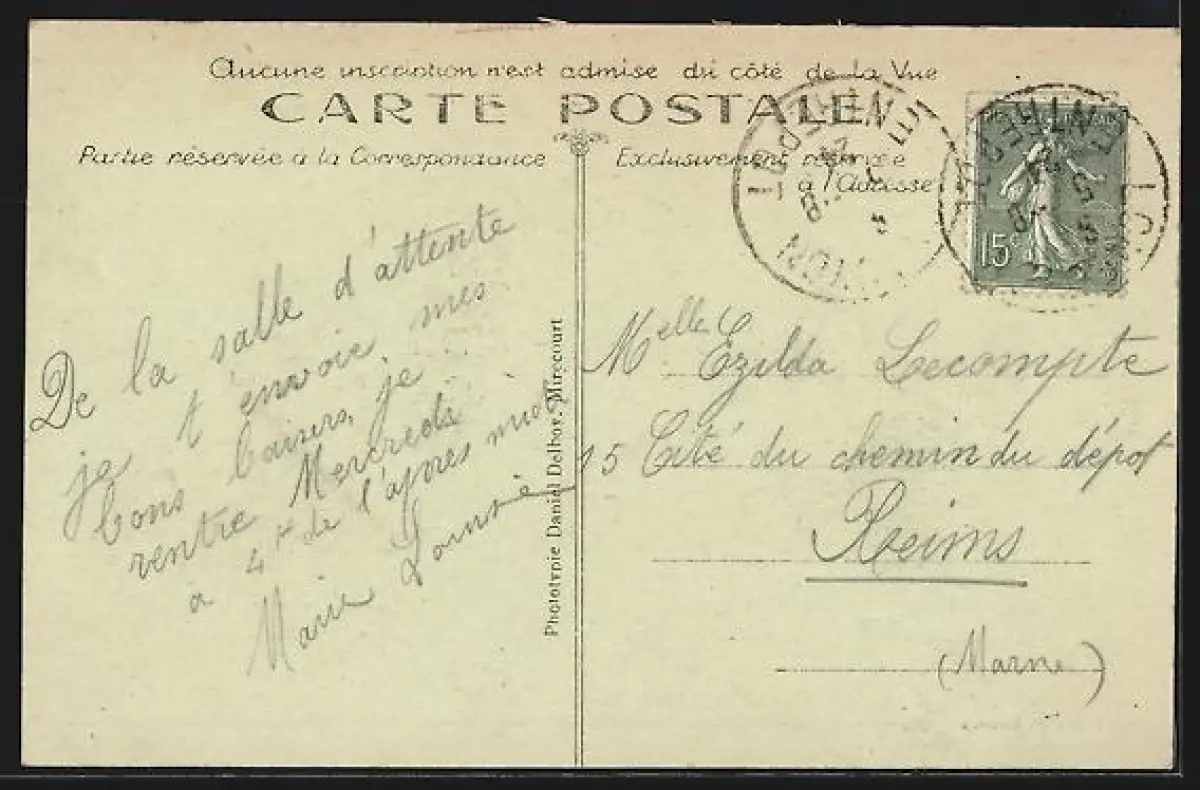 Aucune inscription n'est admise du côté de la Vue
CARTE POSTALE
Partie réservée à la Correspondance
Exclusivement réservée
à l'Adresse
De la salle d'attente
je t'envoie mes
bons baisers, je
rentre Mercredi
à 4h de l'après midi
Marie Louise
Phototypie Daniel Delboy, Mirecourt
15c
Melle Ezilda Lecompte
15 Cité du chemin du dépot
Reims
(Marne)